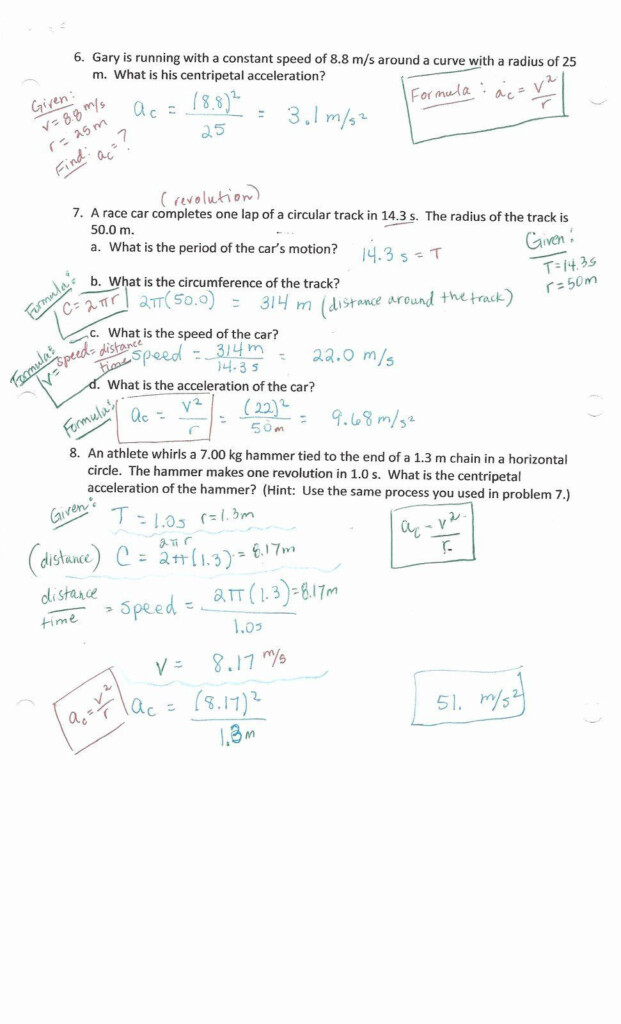 6. Gary is running with a constant speed of 8.8 m/s around a curve with a radius of 25
m. What is his centripetal acceleration?
Given:
v = 8.8 m/s
r = 25m
Find: ac = ?
ac = (8.8)² / 25 = 3.1 m/s²
Formula: ac = v² / r
(revolution)
7. A race car completes one lap of a circular track in 14.3 s. The radius of the track is
50.0 m.
a. What is the period of the car's motion? 14.3 s = T
Given:
T=14.3s
r=50m
b. What is the circumference of the track?
Formula: C=2πr 2π(50.0) = 314 m (distance around the track)
c. What is the speed of the car?
Formula: V= speed = distance / time speed = 314 m / 14.3 s = 22.0 m/s
d. What is the acceleration of the car?
Formula: ac = v² / r = (22)² / 50m = 9.68 m/s²
8. An athlete whirls a 7.00 kg hammer tied to the end of a 1.3 m chain in a horizontal
circle. The hammer makes one revolution in 1.0 s. What is the centripetal
acceleration of the hammer? (Hint: Use the same process you used in problem 7.)
Given: T = 1.0s r=1.3m
ac = v² / r
2πr
(distance) C = 2π(1.3) = 8.17m
distance / time = speed = 2π(1.3)=8.17m / 1.0s
V = 8.17 m/s
ac = v² / r ac = (8.17)² / 1.3m
51. m/s²